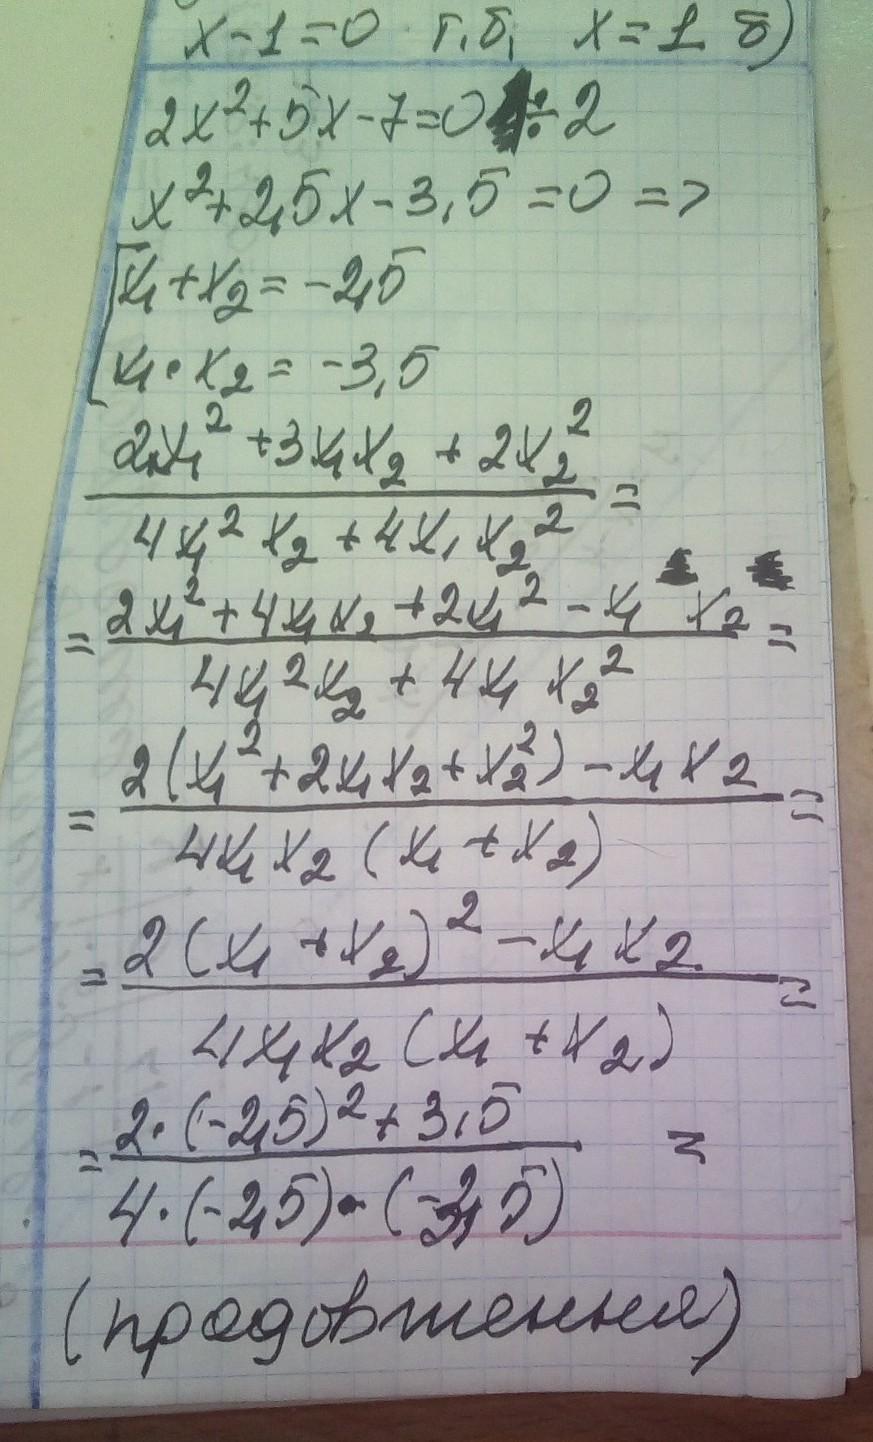 x-1=0 т.б, x=1 б)
2x²+5x-7=0 ÷2
x²+2,5x-3,5=0 =>
[x₁+x₂=-2,5
x₁·x₂=-3,5
2x₁²+3x₁x₂+2x₂²
4x₁²x₂+4x₁x₂² =
= 2x₁²+4x₁x₂+2x₁²-x₁x₂ =
4x₁²x₂+4x₁x₂²
= 2(x₁²+2x₁x₂+x₂²)-x₁x₂ =
4x₁x₂(x₁+x₂)
= 2(x₁+x₂)²-x₁x₂ =
4x₁x₂(x₁+x₂)
= 2·(-2,5)²+3,5 =
4·(-2,5)·(-3,5)
(продовження)